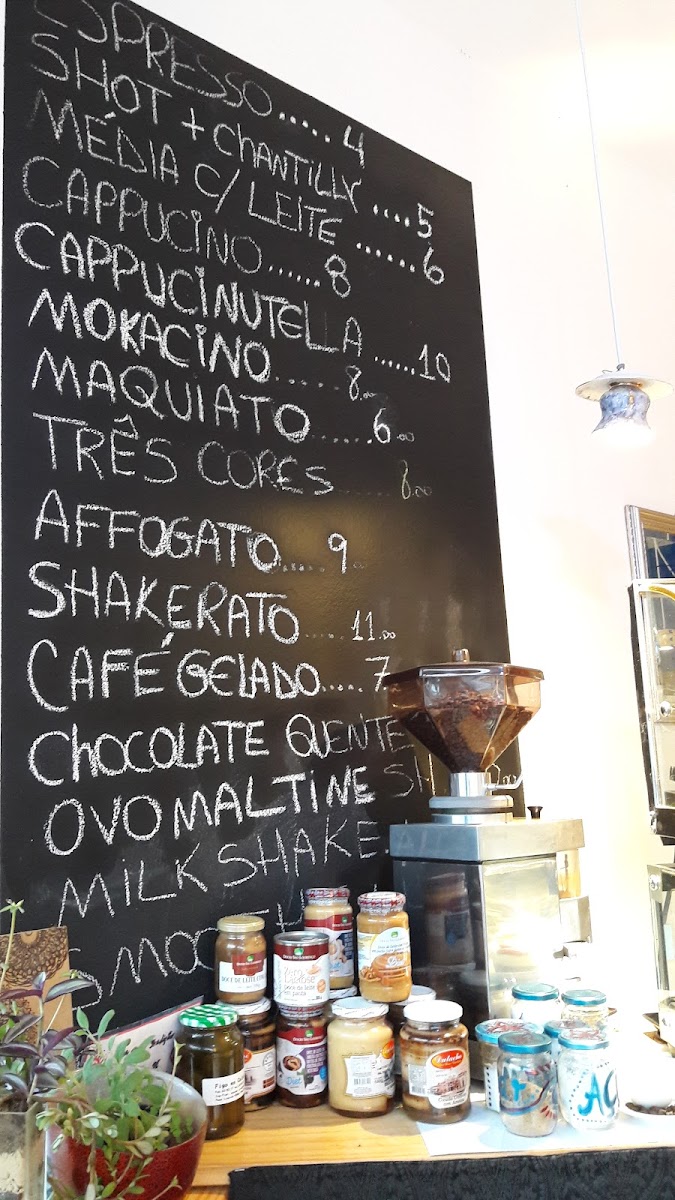 ESPRESSO..... 4
SHOT + CHANTILLY .... 5
MÉDIA C/ LEITE ...... 6
CAPPUCINO ...... 8
CAPPUCINUTELLA ...... 10
MOKACINO...... 8,00
MAQUIATO...... 6.00
TRÊS CORES...... 8.00
AFFOGATO...... 9
SHAKERATO..... 11.00
CAFÉ GELADO..... 7
CHOCOLATE QUENTE
OVOMALTINE SH
MILK SHAKE
SMOOTH
DOCE DE LEITE
Zero Lactose
Diet
Figo
AÇ